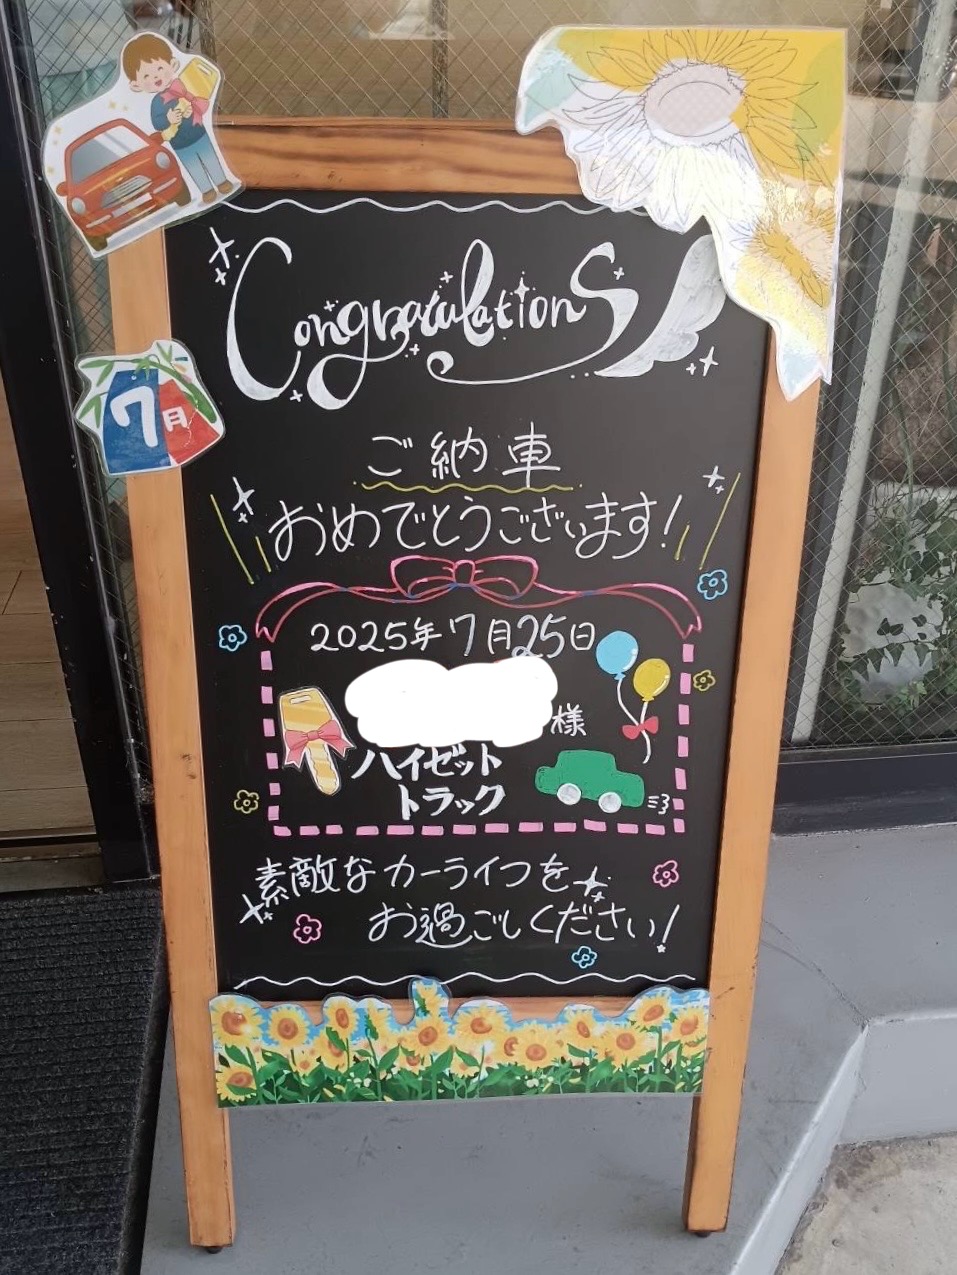 Congratulations
7月
ご納車
おめでとうございます!
2025年7月25日
様
ハイゼット
トラック
素敵なカーライフを
お過ごしください!